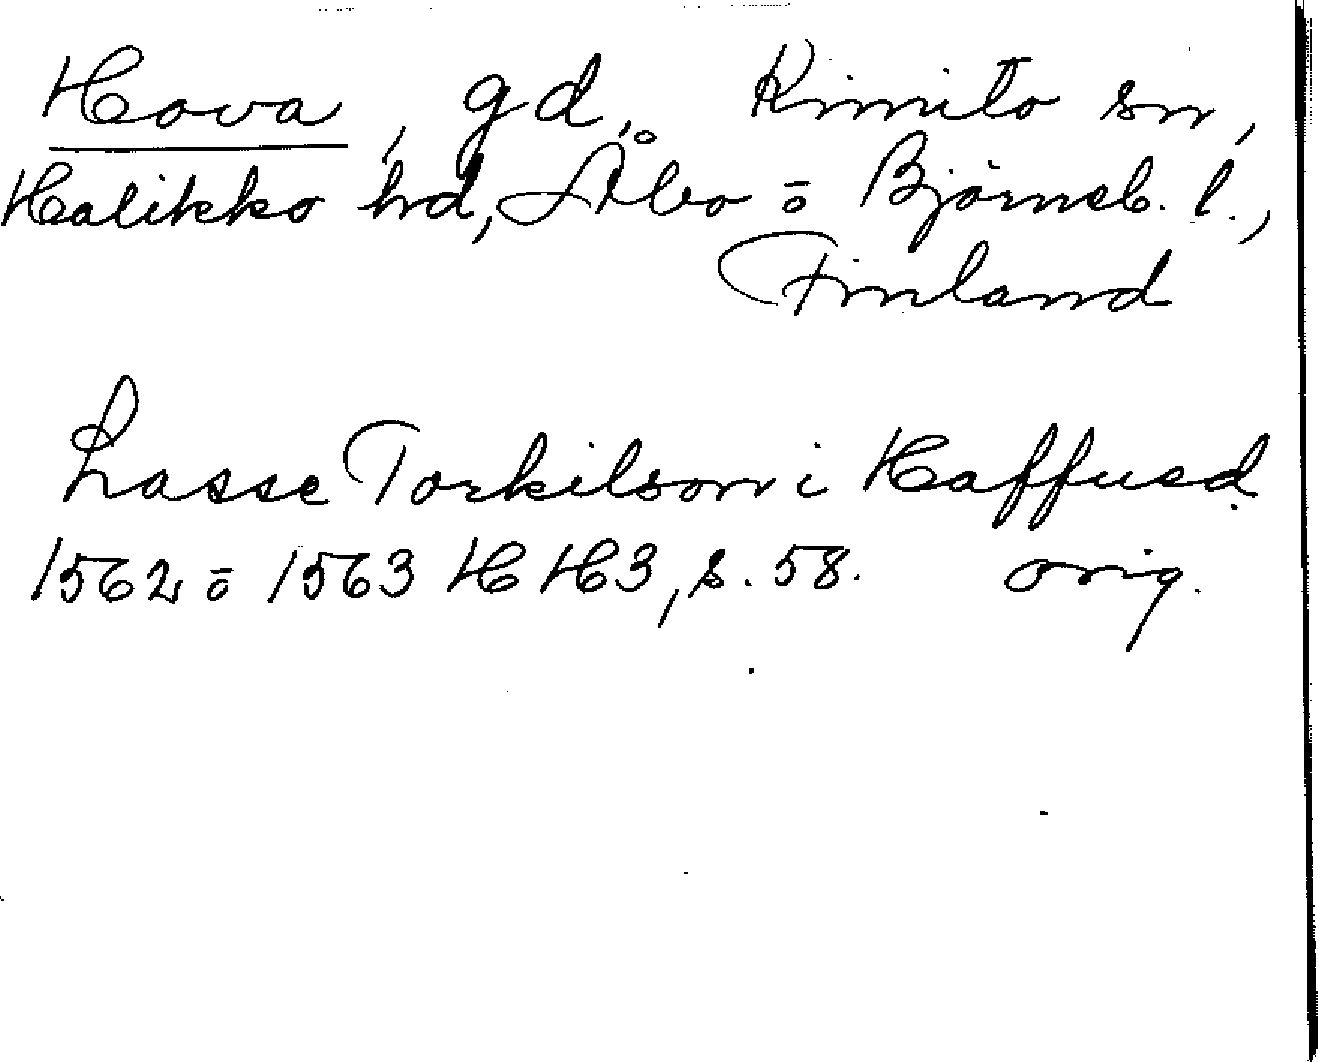 Hova, gd, Kimito sn,
Halikko hd, Åbo o Björneb. l.,
Finland
Lasse Torkilson i Haffued
1562 o 1563 HH3, s. 58. orig.